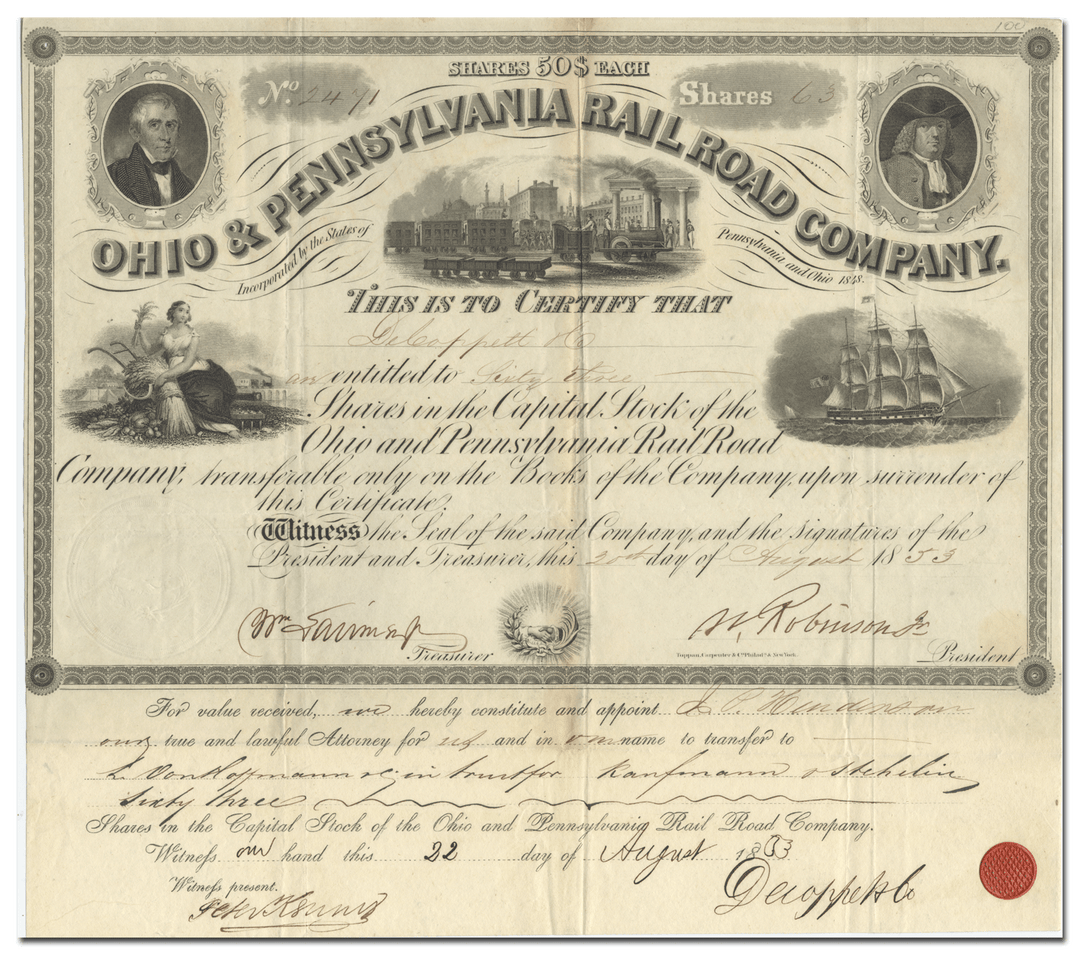 100
SHARES 50$ EACH
No. 2471
Shares 63
OHIO & PENNSYLVANIA RAIL ROAD COMPANY.
Incorporated by the States of Pennsylvania and Ohio 1848.
THIS IS TO CERTIFY THAT
DeCoppett & Co
are entitled to Sixty three
Shares in the Capital Stock of the
Ohio and Pennsylvania Rail Road
Company, transferable only on the Books of the Company, upon surrender of
this Certificate.
Witness the Seal of the said Company, and the Signatures of the
President and Treasurer, this 20th day of August 1853
Wm Larimer Jr
Treasurer
W. Robinson Jr
President
Toppan, Carpenter & Co. Philada. & New York.
For value received, we hereby constitute and appoint J. P. Henderson
our true and lawful Attorney for us and in our name to transfer to
L. Von Hoffmann & c. in trust for Kaufmann & Stehelin
Sixty three
Shares in the Capital Stock of the Ohio and Pennsylvania Rail Road Company.
Witness our hand this 22 day of August 1853
Witness present.
Decoppet & Co
Peter